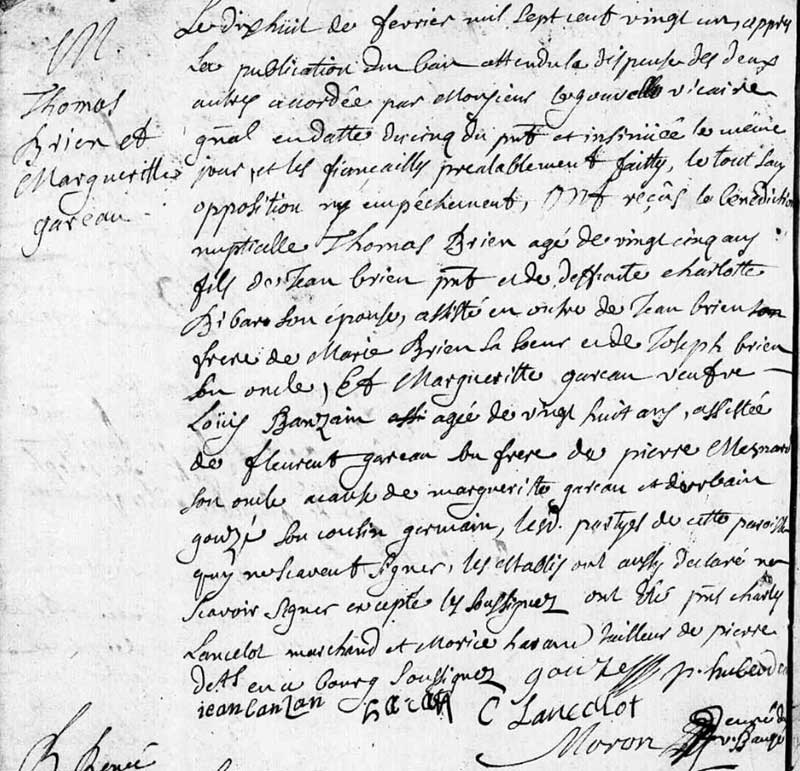 M.
Thomas
Brien et
Margueritte
gareau
Le dix huit de fevrier mil sept cent vingt un, appres
La publication d'un ban attendu la dispense des deux
autres acordée par Monsieur vicaire
gnal en datte du cinq du pnt et insinuée le même
jour, et les fiancailles prealablement faitty, le tout sans
opposition ny empêchement, Ont reçus la benediction
nuptialle Thomas Brien agé de vingt cinq ans
fils de Jean brien pnt et de deffuncte charlotte
Ribar son épouse, assisté en outre de Jean brien son
frere de Marie Brien sa soeur et de Joseph brien
son oncle, Et Margueritte gareau veufve
Loüis Banzain agée de vingt huit ans, assistée
de fleurent gareau son frere de pierre Mesnard
son oncle acause de margueritte gareau et d'urbain
gouzé son cousin germain, lesd. partyes de cette paroisse
quy ne scavent signer, les ont aussy declaré ne
scavoir signer excepté les soussignez ont été pnts charles
Lancelot marchand et Morice haran tailleur de pierre
de en ce bourg soussignez gouze
jean banzan haran C Lancelot
Moron
R René